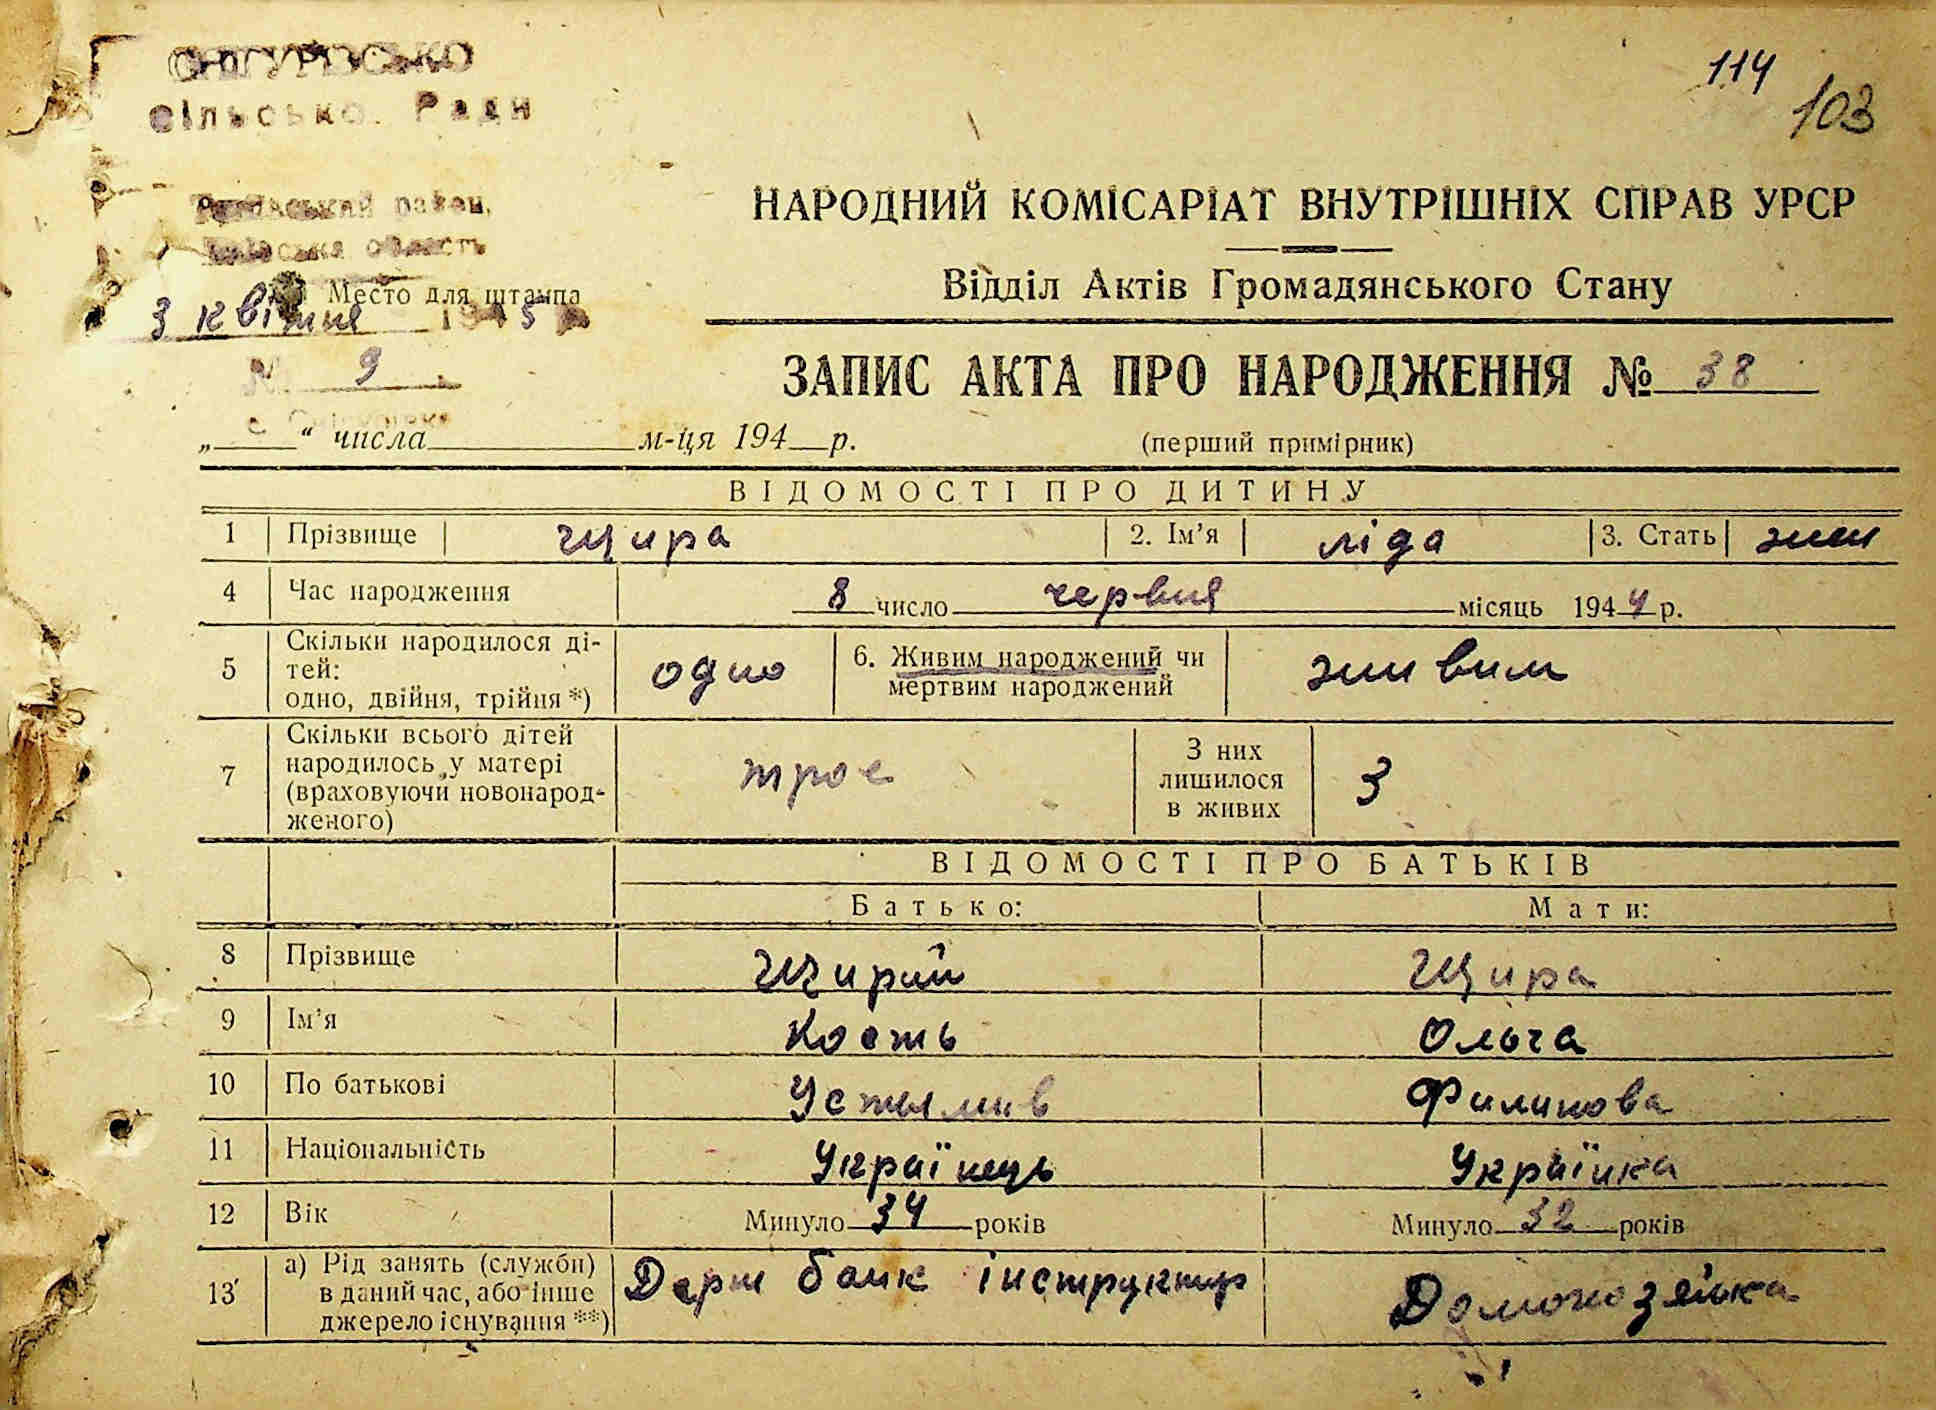 114
103
Сільсько Ради
район
область
НАРОДНИЙ КОМІСАРІАТ ВНУТРІШНІХ СПРАВ УРСР
Відділ Актів Громадянського Стану
Место для штампа
3 квітня 1945
№ 9
ЗАПИС АКТА ПРО НАРОДЖЕННЯ № 38
„ “ числа м-ця 194 р.
(перший примірник)
ВІДОМОСТІ ПРО ДИТИНУ
1 Прізвище Щира 2. Ім’я ліда 3. Стать жин
4 Час народження 8 число червня місяць 1944 р.
5 Скільки народилося ді-
тей:
одно, двійня, трійня *) одно 6. Живим народжений чи
мертвим народжений живим
7 Скільки всього дітей
народилось у матері
(враховуючи новонарод-
женого) троє З них
лишилося
в живих 3
ВІДОМОСТІ ПРО БАТЬКІВ
Батько: Мати:
8 Прізвище Щирий Щира
9 Ім’я Кость Ольга
10 По батькові Устымив Филипова
11 Національність Українець Українка
12 Вік Минуло 34 років Минуло 32 років
13 а) Рід занять (служби)
в даний час, або інше
джерело існування **) Держ банк інструктор Домохозяйка